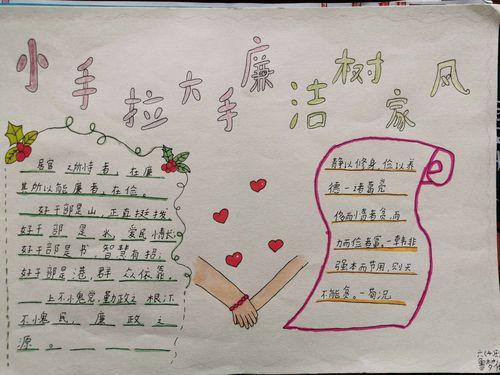 小手拉大手廉洁树家风
居官之所恃者，在廉
其所以能廉者，在俭。
好干部是山，正直挺拔
好干部是水，爱民情长
好干部是书，智慧有招；
好干部是港，群众依靠
上不愧党，勤政之根，下
不愧民，廉政之
源。
静以修身，俭以养
德－诸葛亮
侈而惰者贫，而
力而俭者富。－韩非
强本而节用，则天
不能贫。－荀况